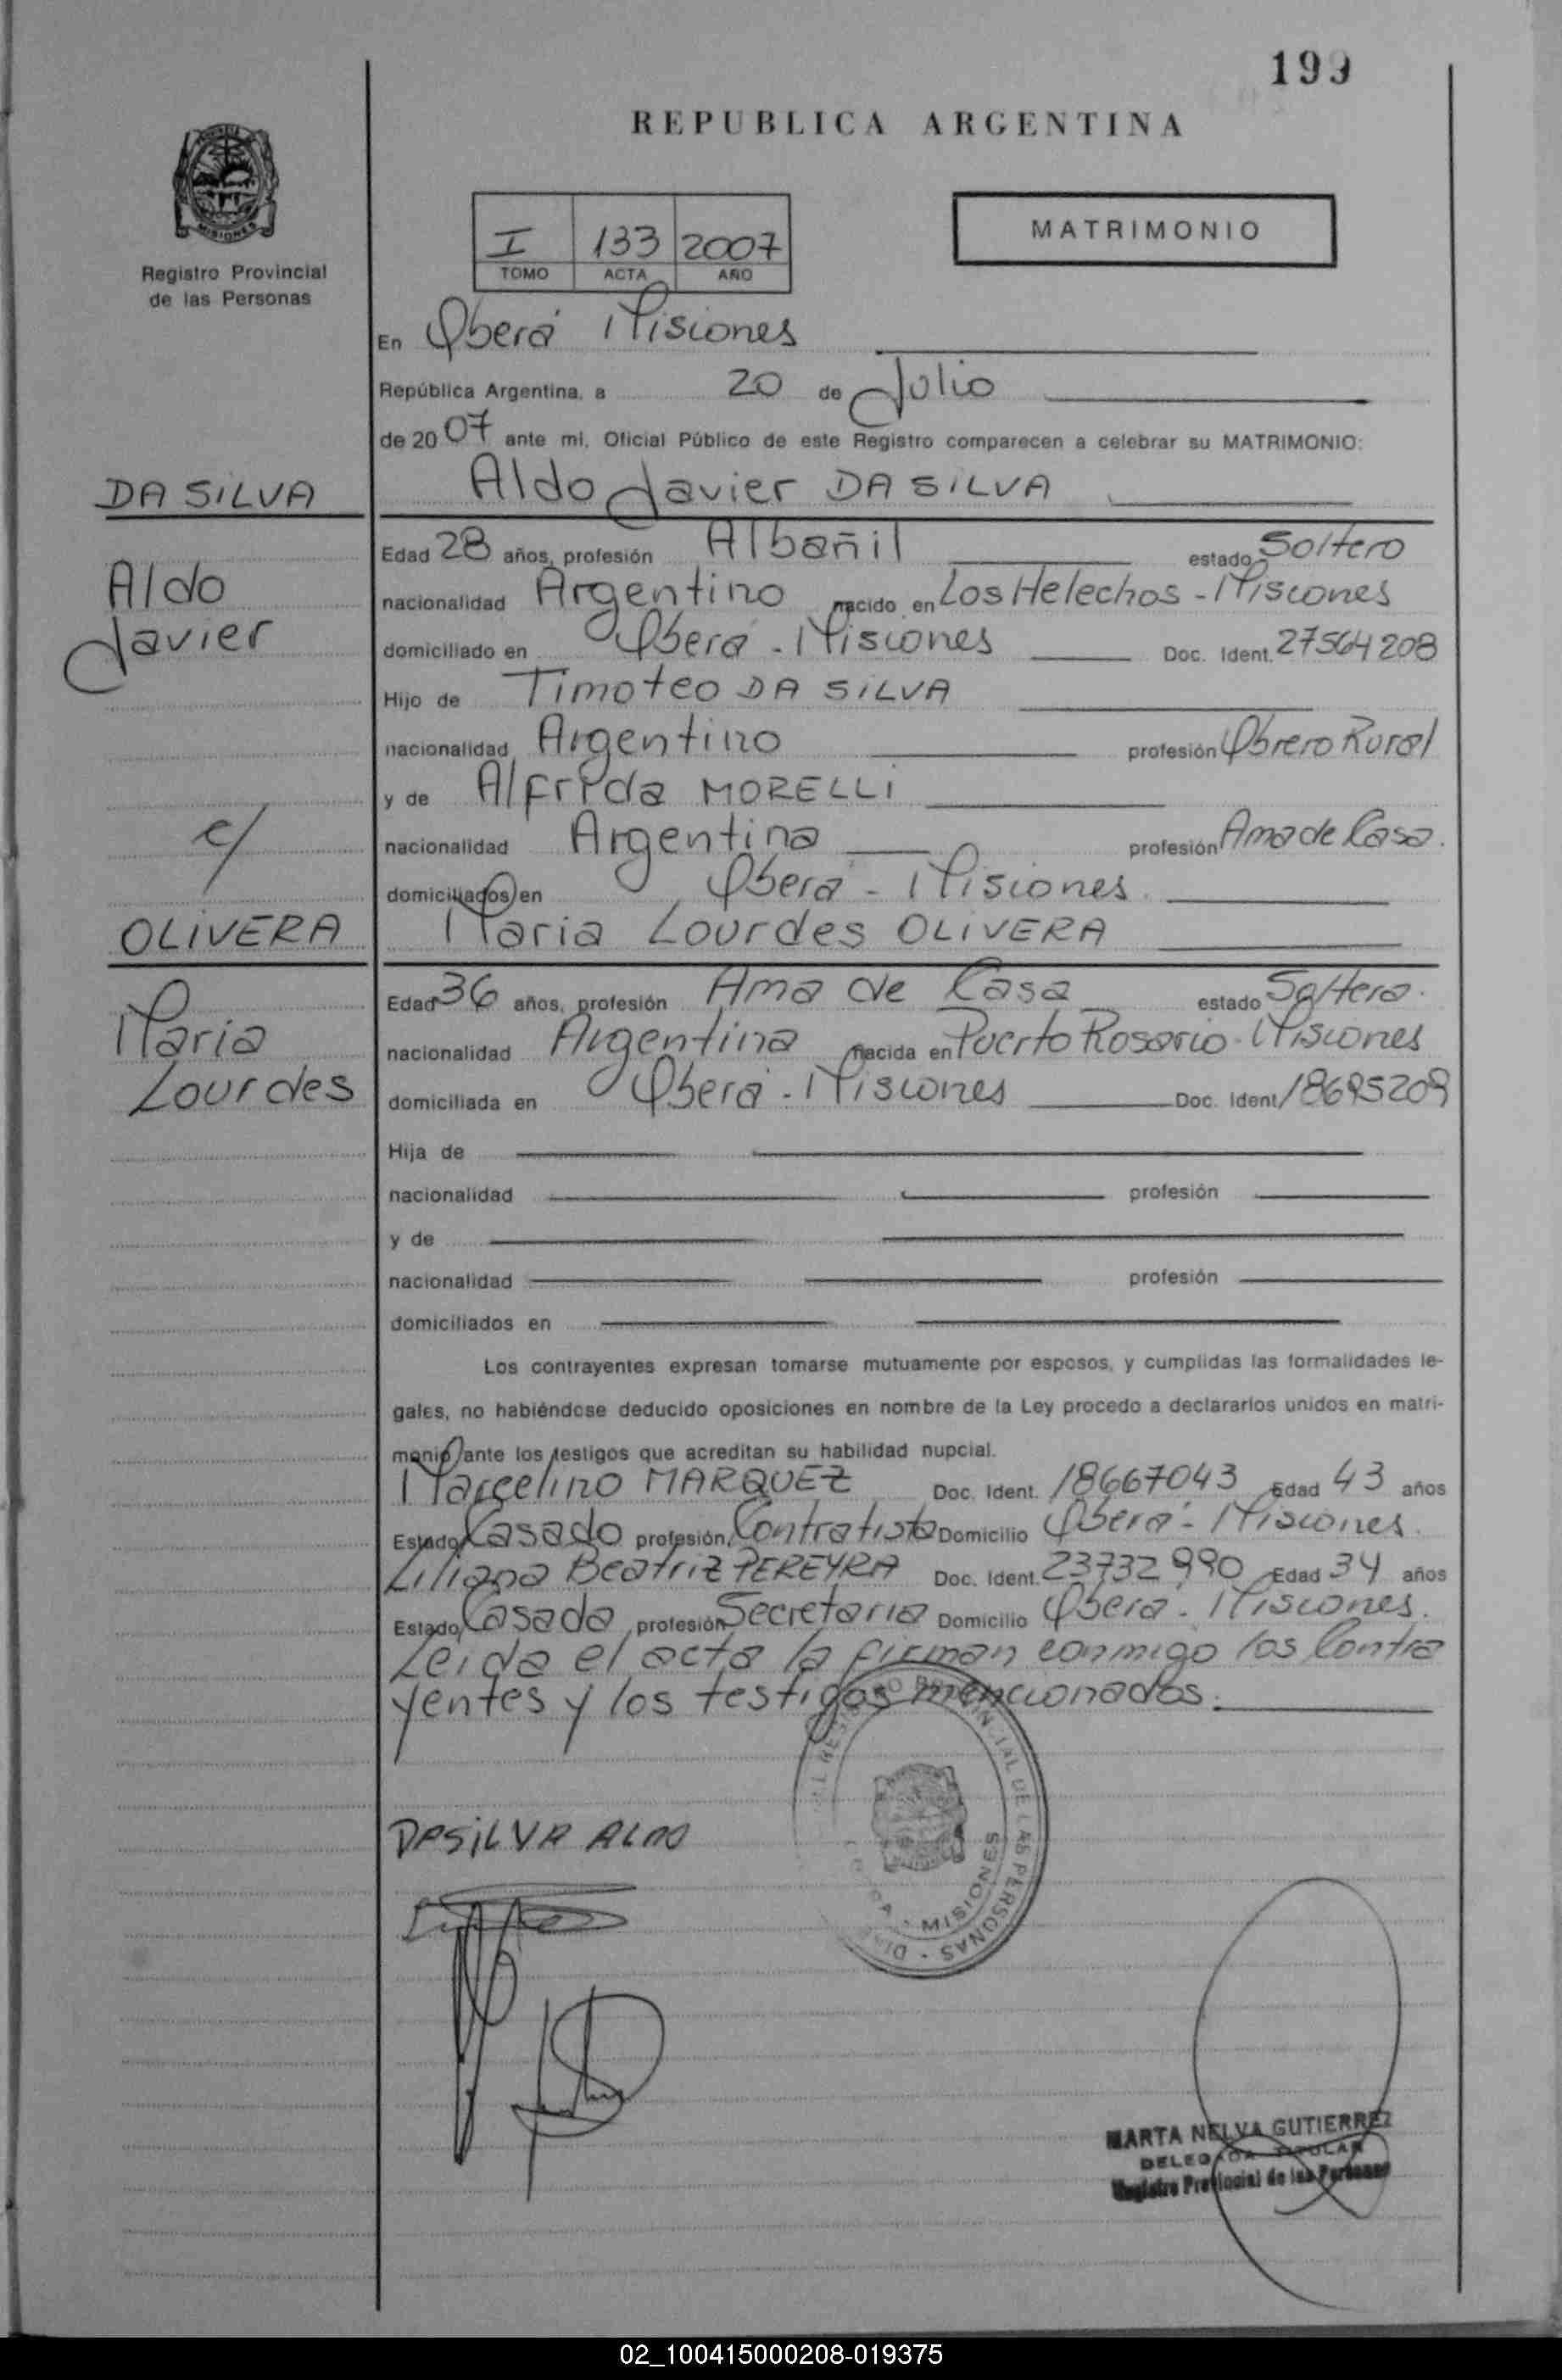 199
REPUBLICA ARGENTINA
MISIONES
Registro Provincial
de las Personas
I 133 2007
TOMO ACTA AÑO
MATRIMONIO
En Oberá Misiones
República Argentina, a 20 de Julio
de 2007 ante mi, Oficial Público de este Registro comparecen a celebrar su MATRIMONIO:
DA SILVA
Aldo Javier DA SILVA
Edad 28 años, profesión Albañil estado Soltero
Aldo
nacionalidad Argentino nacido en Los Helechos - Misiones
Javier
domiciliado en Oberá - Misiones Doc. Ident. 27564208
Hijo de Timoteo DA SILVA
nacionalidad Argentino profesión Obrero Rural
y de Alfrida MORELLI
c/
nacionalidad Argentina profesión Ama de Casa.
domiciliados en Oberá - Misiones
OLIVERA
Maria Lourdes OLIVERA
Edad 36 años, profesión Ama de Casa estado Soltera.
Maria
nacionalidad Argentina nacida en Puerto Rosario - Misiones
Lourdes
domiciliada en Oberá - Misiones Doc. Ident. 18695209
Hija de
nacionalidad profesión
y de
nacionalidad profesión
domiciliados en
Los contrayentes expresan tomarse mutuamente por esposos, y cumplidas las formalidades le-
gales, no habiéndose deducido oposiciones en nombre de la Ley procedo a declararlos unidos en matri-
monio ante los testigos que acreditan su habilidad nupcial.
Marcelino MARQUEZ Doc. Ident. 18667043 Edad 43 años
Estado Casado profesión Contratista Domicilio Oberá - Misiones.
Liliana Beatriz PEREYRA Doc. Ident. 23732990 Edad 34 años
Estado Casada profesión Secretaria Domicilio Oberá - Misiones.
Leida el acta la firman conmigo los Contra
yentes y los testigos mencionados.
REGISTRO PROVINCIAL DE LAS PERSONAS
MISIONES
DASILVA ALDO
MARTA NELVA GUTIERREZ
DELEGADA TITULAR
Registro Provincial de las Personas
02_100415000208-019375